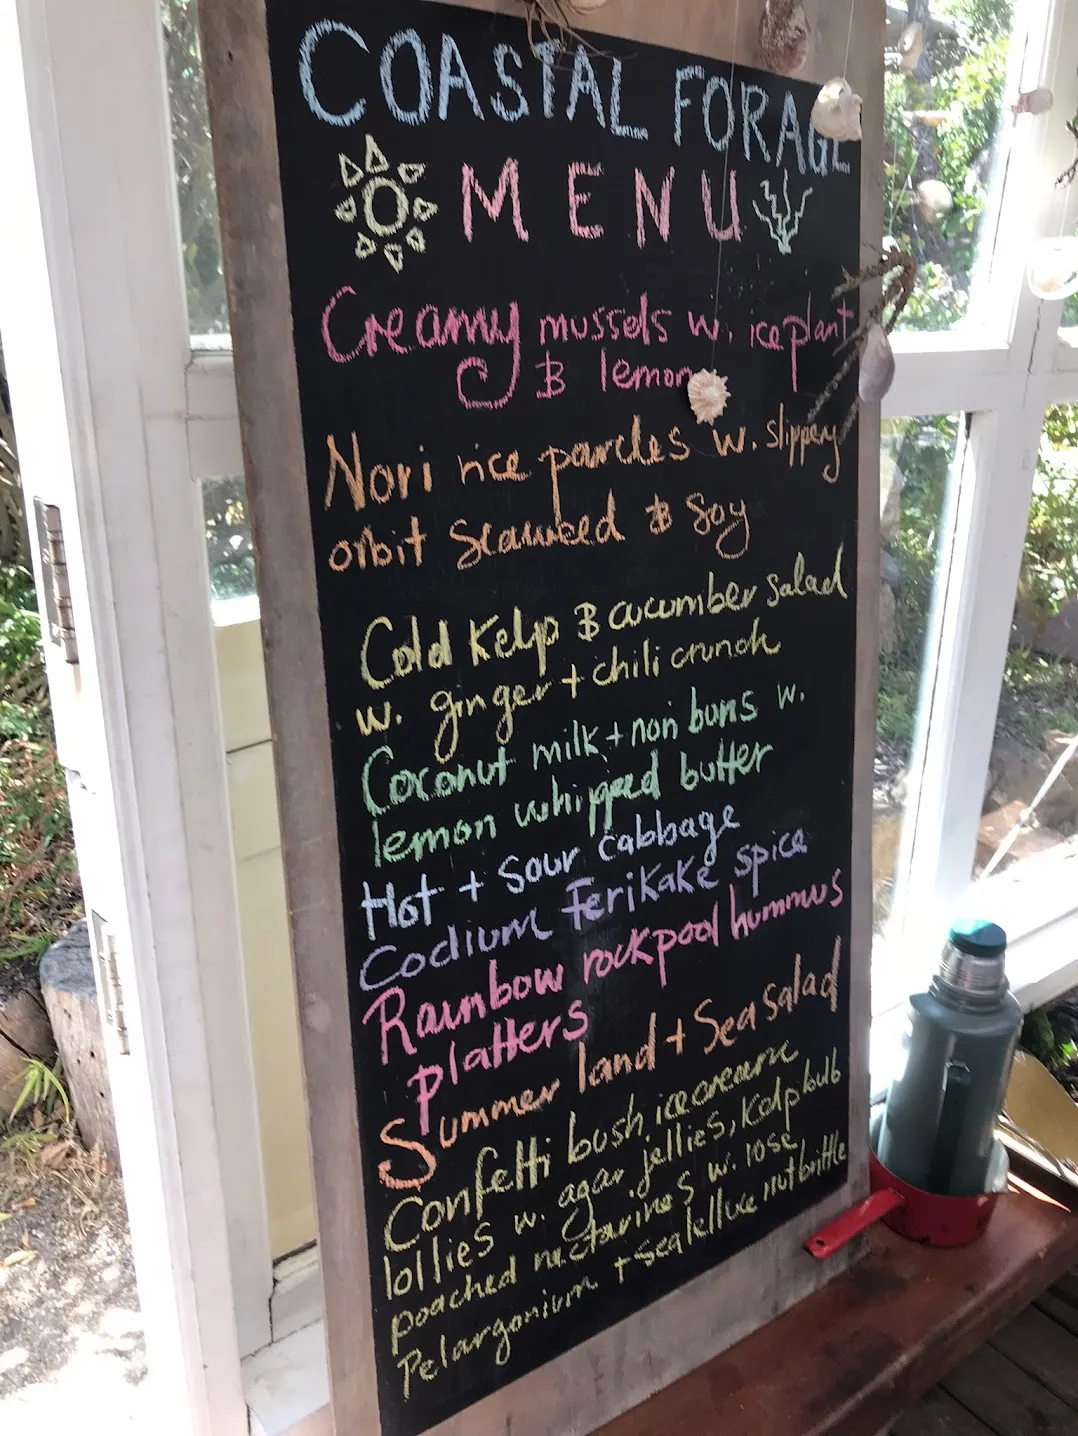 COASTAL FORAGE
MENU
Creamy mussels w. iceplant
& lemon
Nori rice parcles w. slippery
orbit seaweed & soy
Cold Kelp & cucumber salad
w. ginger + chili crunch
Coconut milk + nori buns w.
lemon whipped butter
Hot + sour cabbage
Codium Ferikake spice
Rainbow rockpool hummus
platters
Summer land + Sea Salad
Confetti bush icecream
lollies w. agar jellies, Kelp bulb
poached nectarines w. rose
Pelargonium + sea lettuce nut brittle